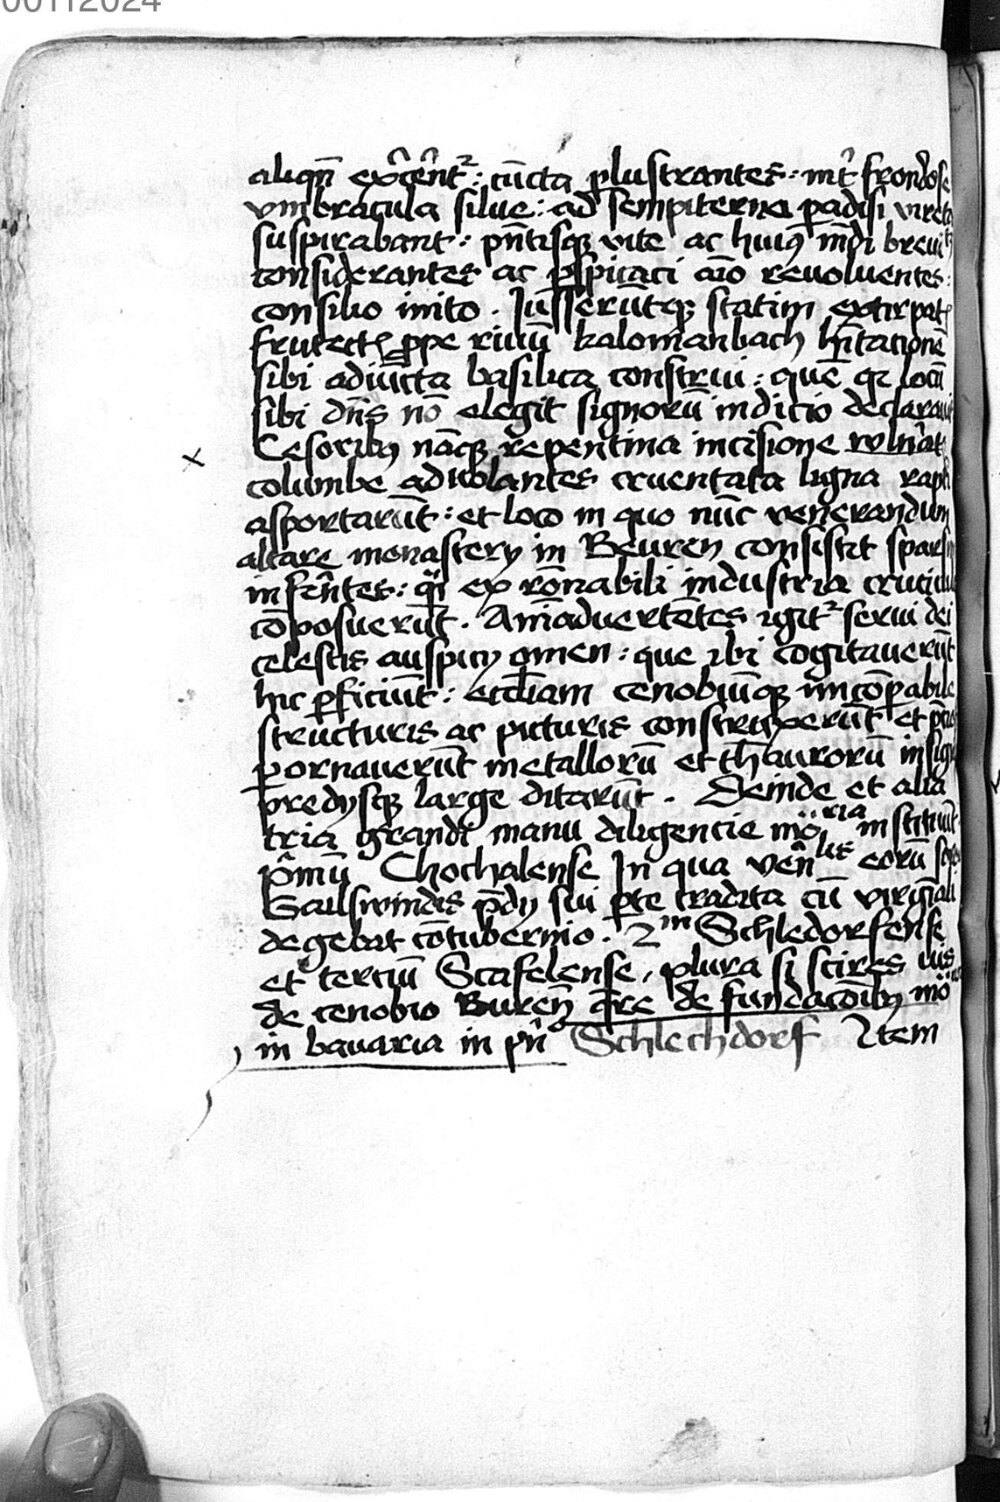 00112024
aliqñ exc̄ēntꝛ : cūcta ꝑlustrantes : int̾ frondose
vmbracula silue : ad sempiterna ꝑadisi vireta
suspirabant : pn̄tisqꝫ vite ac huiꝰ mūdi breuit
considerantes ac ꝑspicaci aīo reuoluentes :
consilio inito . Iusserūtqꝫ statim extirpat
frutect ꝓpe riuū kalomanbach hītationē
sibi adiūcta basilica construi : quē qꝛ locū
sibi dn̄s nō elegit signorū indicio declarauit
Cesoribꝰ nāqꝫ repentina incisione vuln̄at
columbe aduolantes cruentata ligna rapt
asportarūt : et loco in quo nūc venerandum
altare monastery in Beuren consistit sparsim
inferētes : qͥ ex rōnabili industria crucicul
cōposuerūt . Aīaduertētes igitꝛ serui dei
celestis auspicy omen : que ibi cogitauerūt
hic ꝑficiūt : eccl̄iam cenobiūqꝫ incōꝑabile
structuris ac picturis construxerūt et p̄cio
ꝑornauerūt metallorū et thaurorū insign
predysqꝫ large ditarūt . Deinde et alia
tria grandi manu diligencie mōria instituūt
p̄mū Chochalense In qua ven̄lis eorū soror
Gailswindis p̄dy sui ꝑte tradita cū virginali
degebat cōtubernio . 2m Schledorfense
et terciū Scafelense , plura si scires vis
de cenobio Buren̄ q̄re de fundacōibꝰ mō
in bauaria in pn̄o Schlechdorf Item